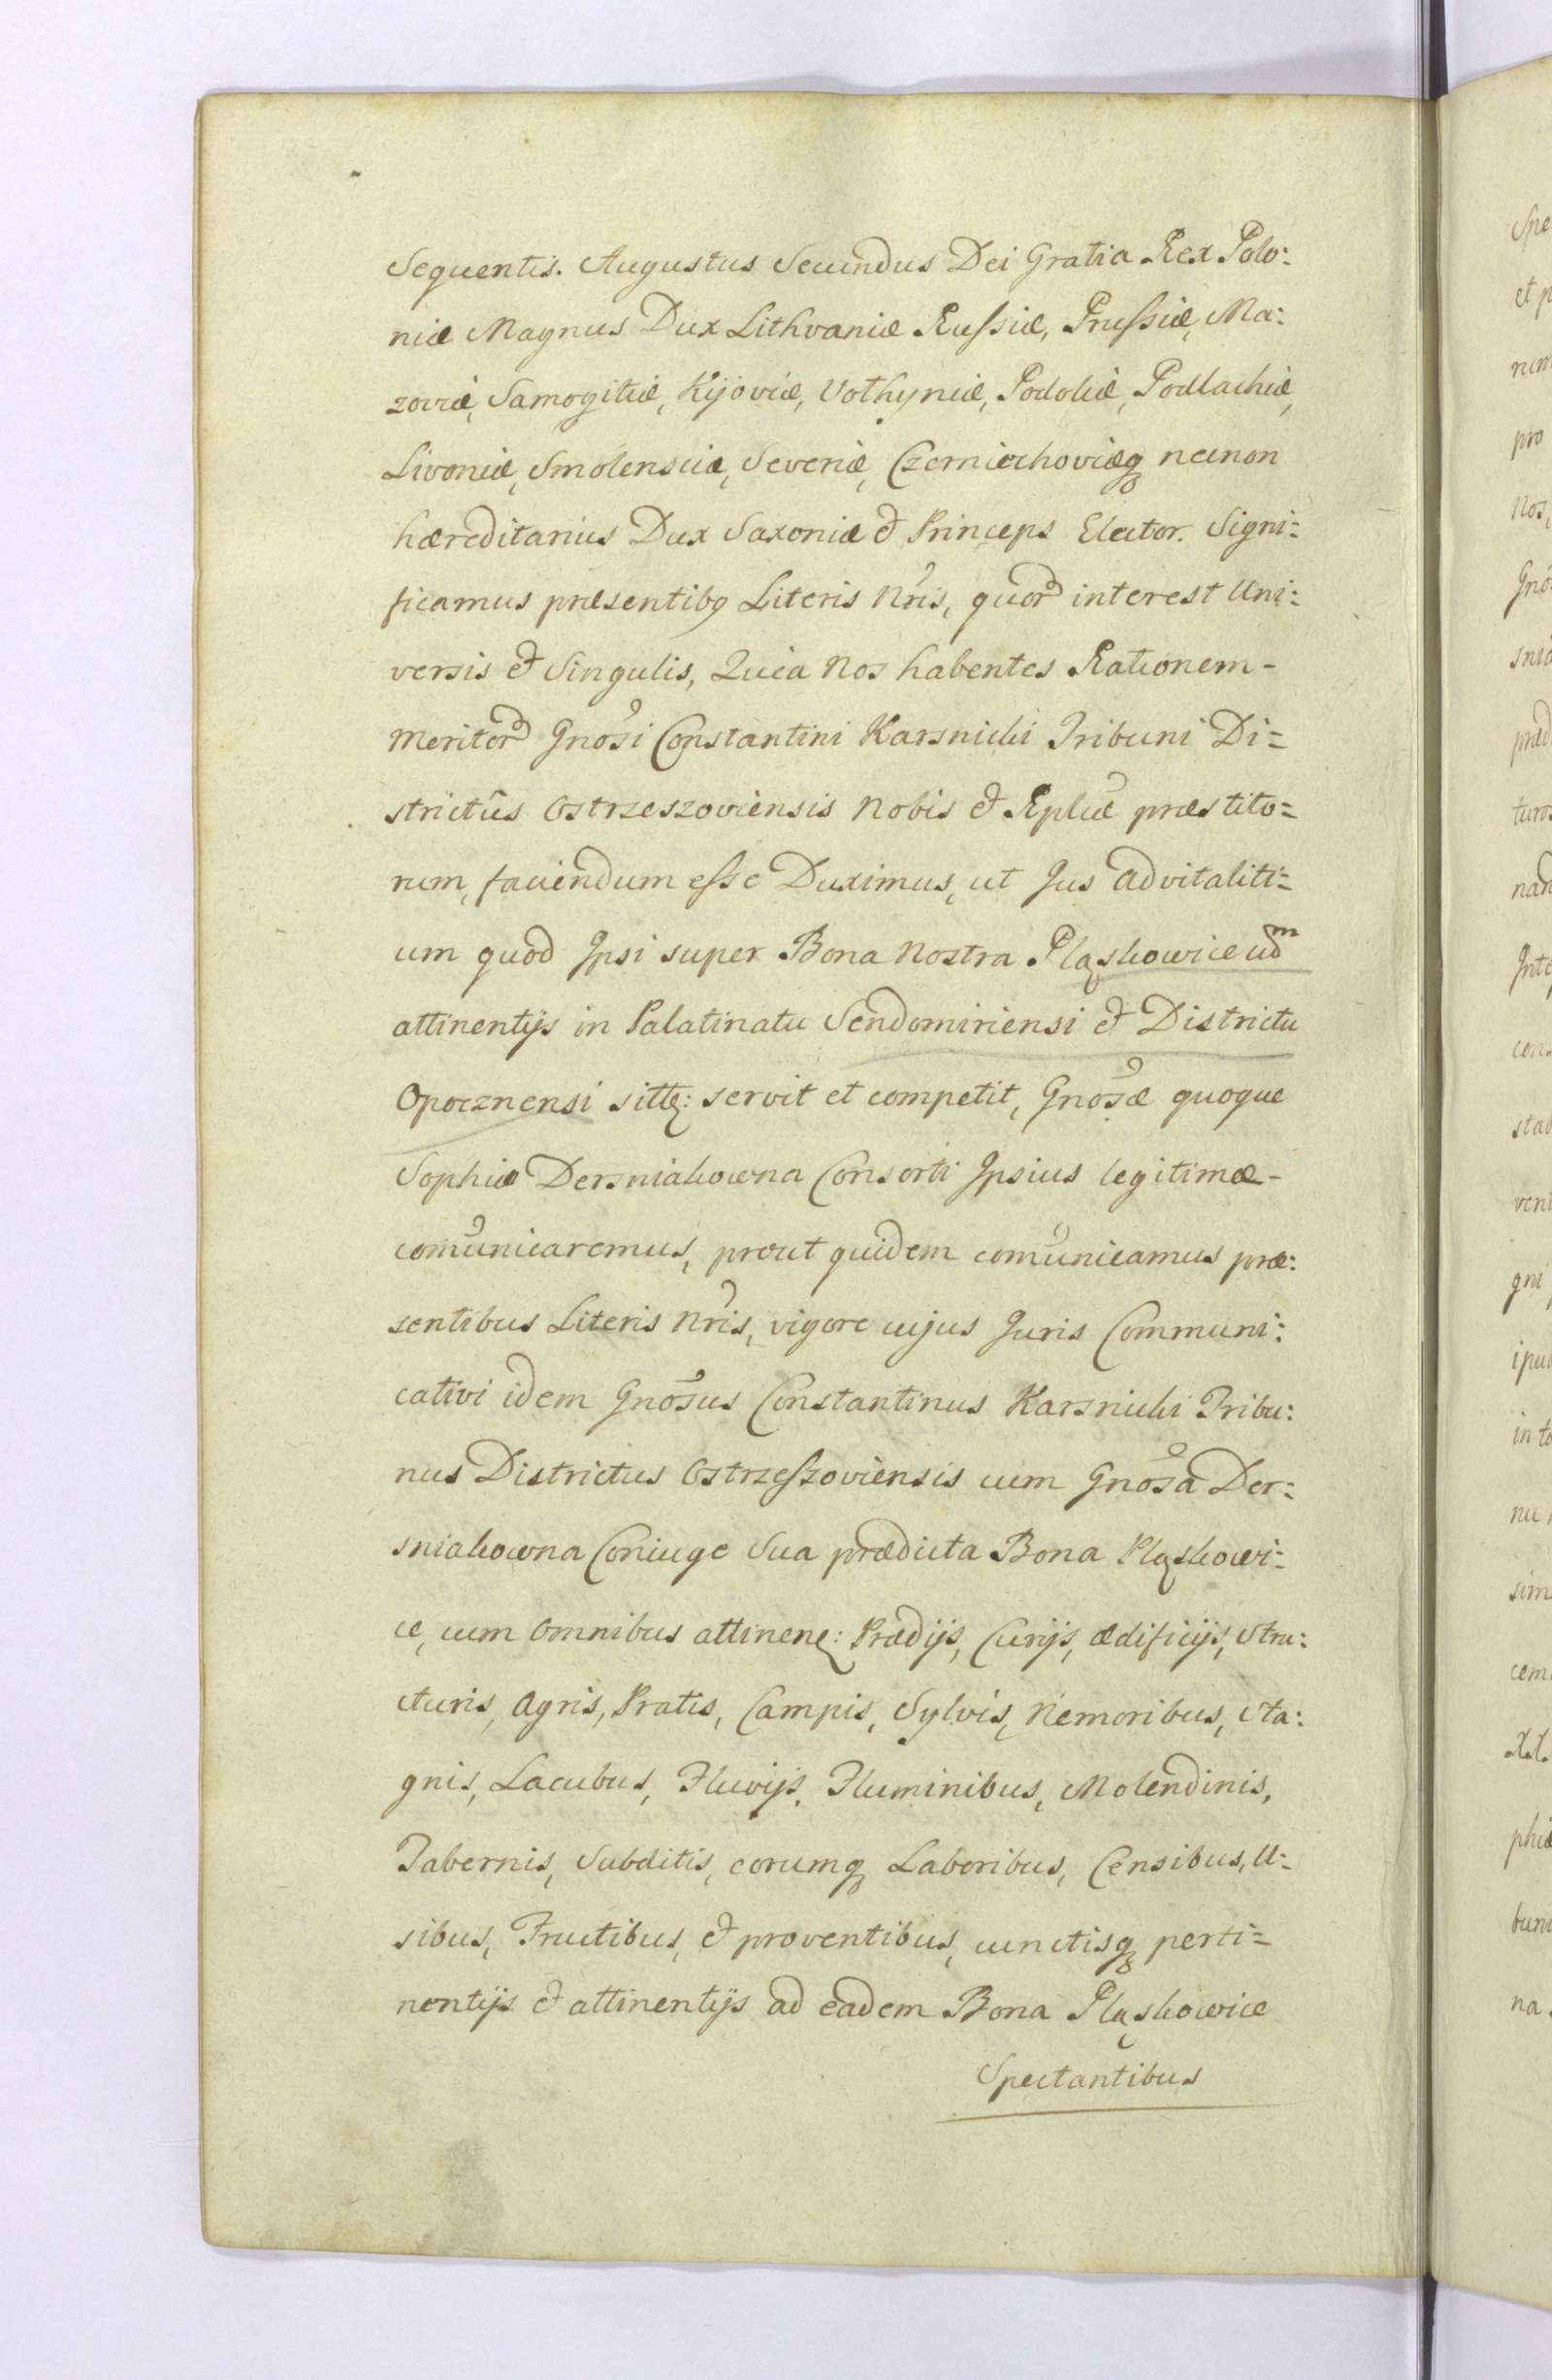 Sequentis. Augustus Secundus Dei Gratia Rex Polo:
niæ Magnus Dux Lithvaniæ Russiæ, Prussiæ, Ma:
zoviæ, Samogitiæ, Kijoviæ, Volhyniæ, Podoliæ, Podlachiæ,
Livoniæ, Smolensciæ, Severiæ, Czerniechoviæq necnon
hæreditarius Dux Saxoniæ & Princeps Elector. Signi:
ficamus præsentibq Literis Nris, quor interest Uni:
versis & Singulis, Quia Nos habentes Rationem-
meritor Gnosi Constantini Karsnicki Tribuni Di=
strictûs Ostrzeszoviensis Nobis & Rplicæ præstito=
rum, faciendum esse Duximus, ut Jus advitaliti=
um quod Ipsi super Bona Nostra Pląskowice cum
attinentijs in Palatinatu Sendomiriensi & Districtu
Opocznensi sittę: servit et competit, Gnosæ quoque
Sophiæ Dersniakowna Consorti Ipsius legitimæ-
comunicaremus, prout quidem comunicamus præ:
sentibus Literis Nris, vigore cujus Juris Communi:
cativi idem Gnosus Constantinus Karsnicki Tribu:
nus Districtus Ostrzeszoviensis cum Gnosa Der=
sniakowna Coniuge Sua prædicta Bona Pląskowi=
ce, cum omnibus attinenę: Prædijs, Curijs, ædificijs, Stru:
cturis, Agris, Pratis, Campis, Sylvis, Nemoribus, Sta:
gnis, Lacubus, Fluvijs, Fluminibus, Molendinis,
Tabernis, Subditis, eorumq Laboribus, Censibus, U=
sibus, Fructibus, & proventibus, cunctisq perti=
nentijs & attinentijs ad eadem Bona Pląskowice
Spectantibus